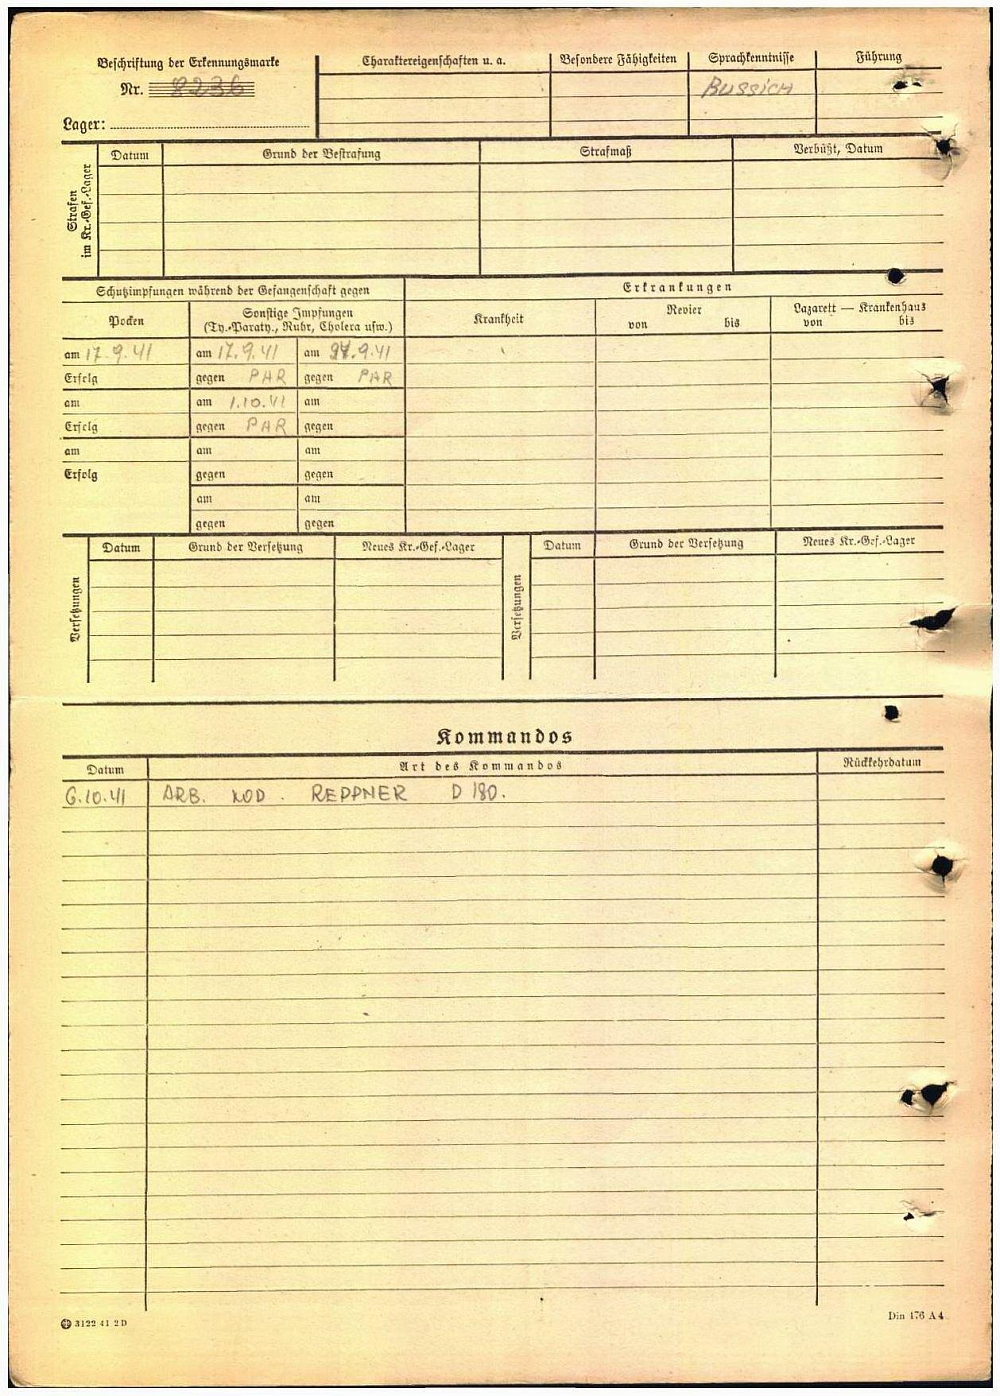 Beschriftung der Erkennungsmarke
Nr. 8236
Lager:
Charaktereigenschaften u. a.
Besondere Fähigkeiten
Sprachkenntnisse
Führung
Russich
Strafen
im Kr.-Gef.-Lager
Datum
Grund der Bestrafung
Strafmaß
Verbüßt, Datum
Schutzimpfungen während der Gefangenschaft gegen
Erkrankungen
Pocken
Sonstige Impfungen
(Ty.-Paraty., Ruhr, Cholera usw.)
Krankheit
Revier
von bis
Lazarett — Krankenhaus
von bis
am 17.9.41 am 17.9.41 am 9.41
Erfolg gegen PAR gegen PAR
am am 1.10.41 am
Erfolg gegen PAR gegen
am am am
Erfolg gegen gegen
am am
gegen gegen
Versetzungen
Datum Grund der Versetzung Neues Kr.-Gef.-Lager
Versetzungen
Datum Grund der Versetzung Neues Kr.-Gef.-Lager
Kommandos
Datum Art des Kommandos Rückkehrdatum
6.10.41 ARB. KOD. REPPNER D 180.
3122 41 2 D
Din 476 A 4